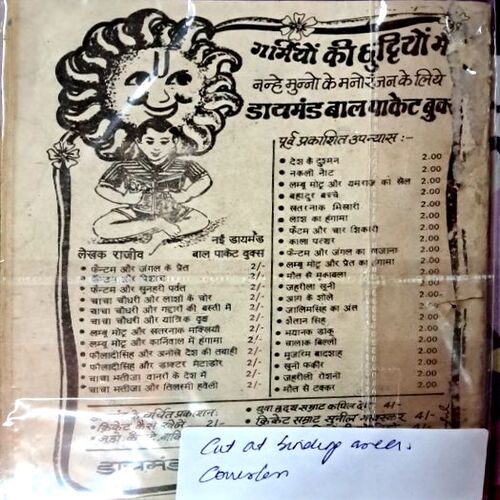 गर्मियों की छुट्टियों में
नन्हे मुन्नो के मनोरंजन के लिये
डायमंड बाल पाकेट बुक्स
पूर्व प्रकाशित उपन्यास :-
देश के दुश्मन 2.00
नकली नोट 2.00
लम्बू मोटू और यमराज का खेल 2.00
बहादुर बच्चे 2.00
खतरनाक भिखारी 2.00
लाश का हंगामा 2.00
फैंटम और चार शिकारी 2.00
काला पत्थर 2.00
फैन्टम और जंगल का खजाना 2.00
लम्बू मोटू और प्रेत का हंगामा 2.00
मौत से मुकाबला 2.00
जहरीला खूनी 2.00
आग के शोले 2.00
जालिमसिंह का अंत 2.00
शैतान सिंह 2.00
भयानक डाकू 2.00
चालाक बिल्ली 2.00
मुजरिम बादशाह 2.00
खूनी फकीर 2.00
जहरीली रोशनी 2.00
मौत से टक्कर 2.00
नई डायमंड
लेखक राजीव बाल पाकेट बुक्स
फैन्टम और जंगल के प्रेत 2/-
फैन्टम और 2/-
फैन्टम और सुनहरी पर्वत 2/-
चाचा चौधरी और लाशों के चोर 2/-
चाचा चौधरी और गद्दारों की बस्ती में 2/-
चाचा चौधरी और यांत्रिक वृक्ष 2/-
लम्बू मोटू और खतरनाक मक्खियाँ 2/-
लम्बू मोटू और कार्निवाल में हंगामा 2/-
फौलादीसिंह और अनोखे देश की तबाही 2/-
फौलादीसिंह और डाक्टर मेटाडोर 2/-
चाचा भतीजा वानरों के देश में 2/-
चाचा भतीजा और तिलस्मी हवेली 2/-
क्रिकेट कैसे खेलें 2/-
युवा हृदय सम्राट कपिल देव 4/-
क्रिकेट सम्राट सुनील गावस्कर
डायमंड
Cut at binding areas.